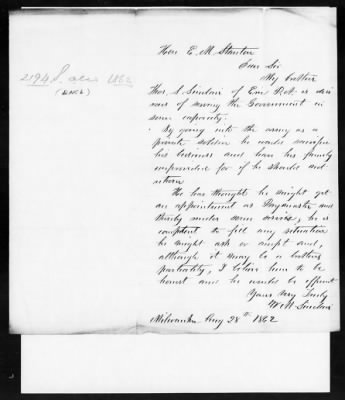 2194 S. 1862
(ENCL)
Hon E. M. Stanton
Dear Sir
My brother
Thos S. Sinclair of Erie Pa. is desi
rous of serving the Government in
some capacity.
By going into the army as a
private soldier he would sacrifice
his business and leave his family
unprovided for if he should not
return
He has thought he might get
an appointment as Paymaster and
thereby render some service, he is
competent to fill any situation
he might ask or accept and,
although it may be a brothers
partiality, I believe him to be
honest and he would be efficient
Yours Very Truly
W H Sinclair
Milwaukee Aug 28th 1862